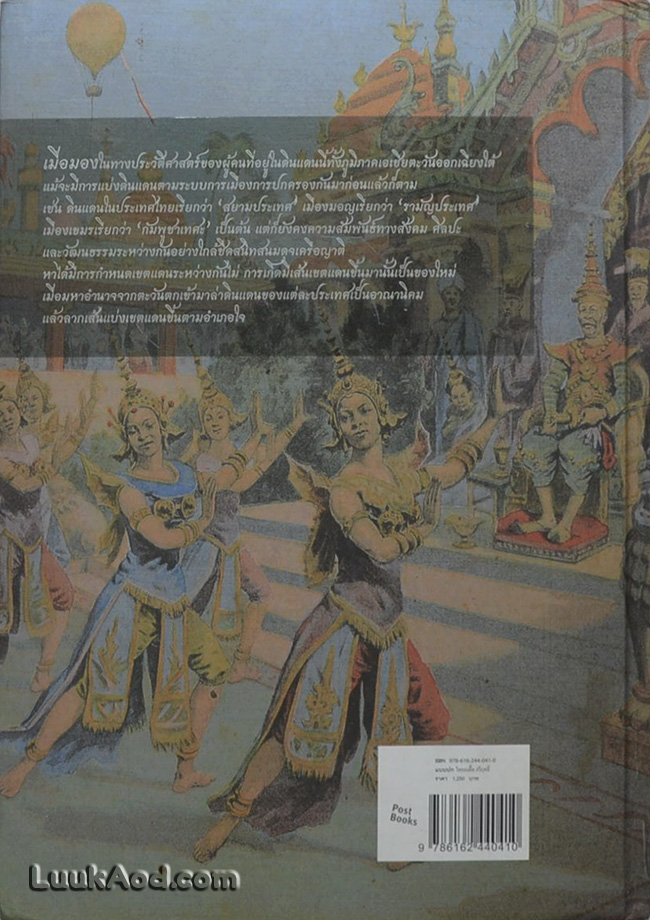 เมื่อมองในทางประวัติศาสตร์ของผู้คนที่อยู่ในดินแดนนี้ทั้งภูมิภาคเอเชียตะวันออกเฉียงใต้
แม้จะมีการแบ่งดินแดนตามระบบการเมืองการปกครองกันมาก่อนแล้วก็ตาม
เช่น ดินแดนในประเทศไทยเรียกว่า ‘สยามประเทศ’ เมืองมอญเรียกว่า ‘รามัญประเทศ’
เมืองเขมรเรียกว่า ‘กัมพูชาเทศะ’ เป็นต้น แต่ก็ยังคงความสัมพันธ์ทางสังคม ศิลปะ
และวัฒนธรรมระหว่างกันอย่างใกล้ชิดสนิทสนมดุจเครือญาติ
หาได้มีการกำหนดเขตแดนระหว่างกันไม่ การเกิดมีเส้นเขตแดนขึ้นมานั้นเป็นของใหม่
เมื่อมหาอำนาจจากตะวันตกเข้ามาล่าดินแดนของแต่ละประเทศเป็นอาณานิคม
แล้วลากเส้นแบ่งเขตแดนขึ้นตามอำเภอใจ
ISBN: 978-616-244-041-0
ราคา 1,250 บาท
Post
Books
9 786162 440410
LuukAod.com